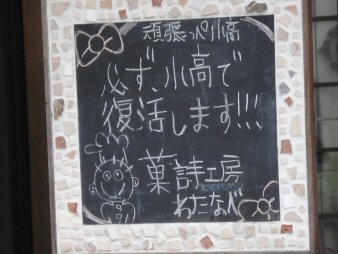 頑張っぺ小高
必ず、小高で
復活します!!!
菓詩工房
わたなべ